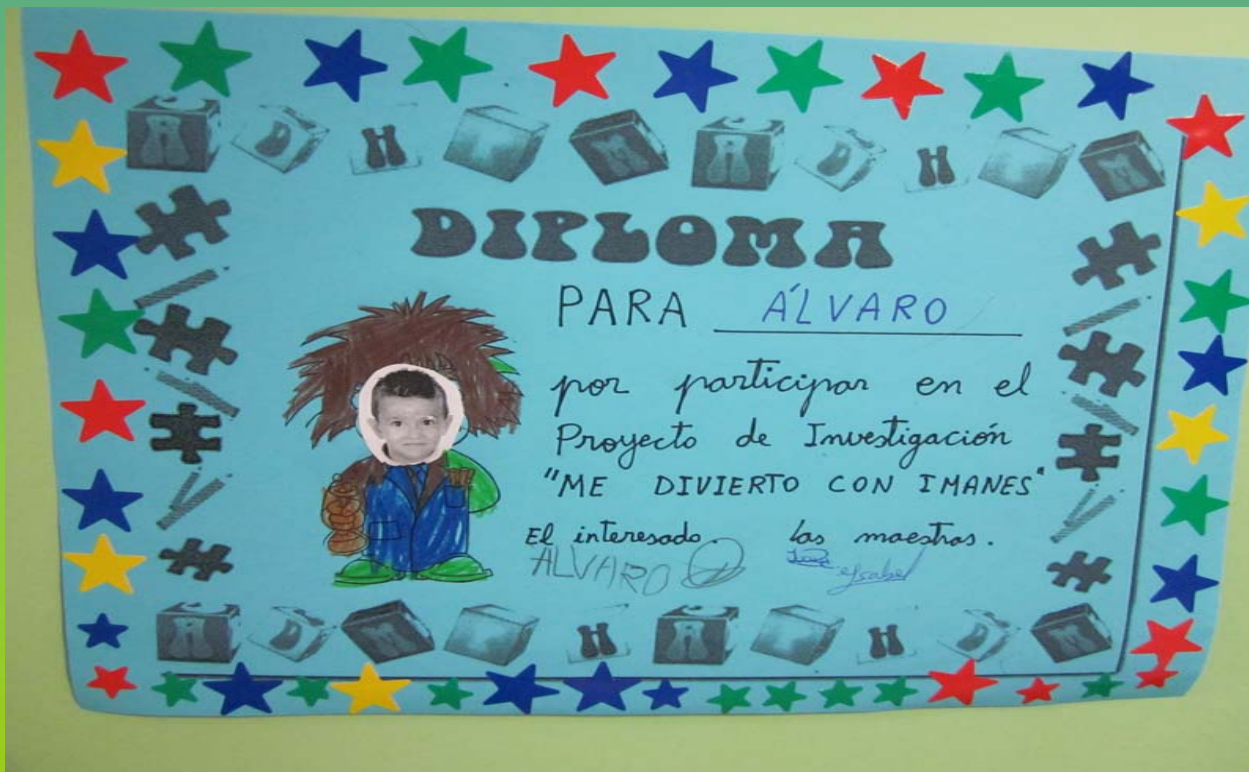 DIPLOMA
PARA ÁLVARO
por participar en el
Proyecto de Investigación
"ME DIVIERTO CON IMANES"
El interesado. Las maestras.
ALVARO Ysabel